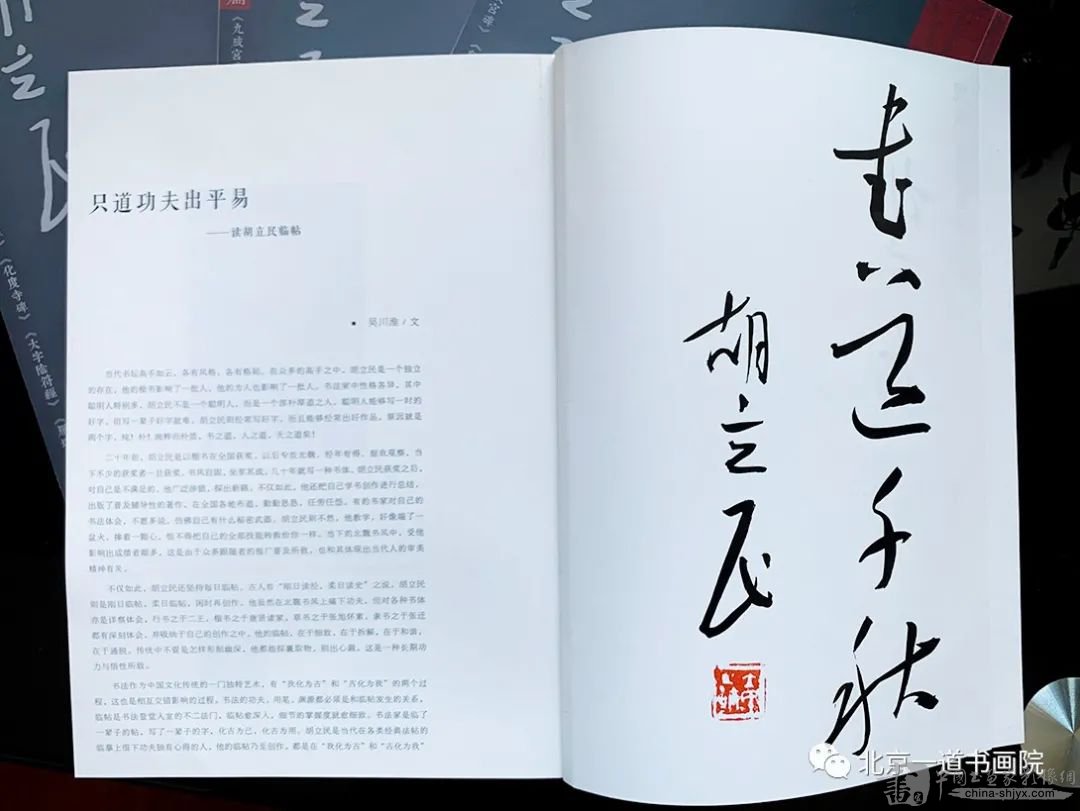 只道功夫出平易
——读胡立民临帖
★ 吴川淮/文
当代书坛高手如云，各有风格，各有格局。在众多的高手之中，胡立民是一个独立
的存在，他的楷书影响了一批人，他的为人也影响了一批人。书法家中性格各异，其中
聪明人特别多，胡立民不是一个聪明人，而是一个淳朴厚道之人。聪明人能够写一时的
好字，但写一辈子好字就难，胡立民则经常写好字，而且能够经常出好作品，原因就是
两个字，纯！朴！纯粹而朴质，书之道，人之道，天之道矣！
二十年前，胡立民是以楷书在全国获奖，以后专攻北魏，经年有得，蔚然观察，当
下不少的获奖者一旦获奖，书风自固，坐享其成，几十年就写一种书体。胡立民获奖之后，
对自己是不满足的，他广泛涉猎，探出新路，不仅如此，他还把自己学书创作进行总结，
出版了普及辅导性的著作，在全国各地布道，勤勤恳恳，任劳任怨。有的书家对自己的
书法体会，不愿多说，仿佛自己有什么秘密武器。胡立民则不然，他教学，好像端了一
盆火，捧着一颗心，恨不得把自己的全部技能都教给你一样。当下的北魏书风中，受他
影响出成绩者颇多，这是由于众多跟随者的推广普及所致，也和其体现出当代人的审美
精神有关。
不仅如此，胡立民还坚持每日临帖。古人有“刚日读经，柔日读史”之说，胡立民
则是刚日临帖，柔日临帖，闲时再创作。他虽然在北魏书风上痛下功夫，但对各种书体
亦是详察体会，行书之于二王，楷书之于唐贤诸家，草书之于张旭怀素，隶书之于张迁
都有深刻体会，并吸纳于自己的创作之中。他的临帖，在于细致，在于拆解，在于和谐，
在于通脱，传统中不管是怎样形制幽深，他都能探囊取物，别出心裁。这是一种长期功
力与悟性所致。
书法作为中国文化传统的一门独特艺术，有“我化为古”和“古化为我”的两个过
程，这也是相互交错影响的过程，书法的功夫、用笔、渊源都必须是和临帖发生的关系，
临帖是书法登堂入室的不二法门，临帖愈深入，细节的掌握度就愈细致。书法家是临了
一辈子的帖，写了一辈子的字，化古为己，化古为用。胡立民是当代在各类经典法帖的
临摹上很下功夫独有心得的人，他的临帖乃至创作，都是在“我化为古”和“古化为我”
千秋
胡立民
《化度寺碑》《大字阴符经》
《九成宫
立民
北京一道书画院
中国书画家影像网
china-shjyx.com